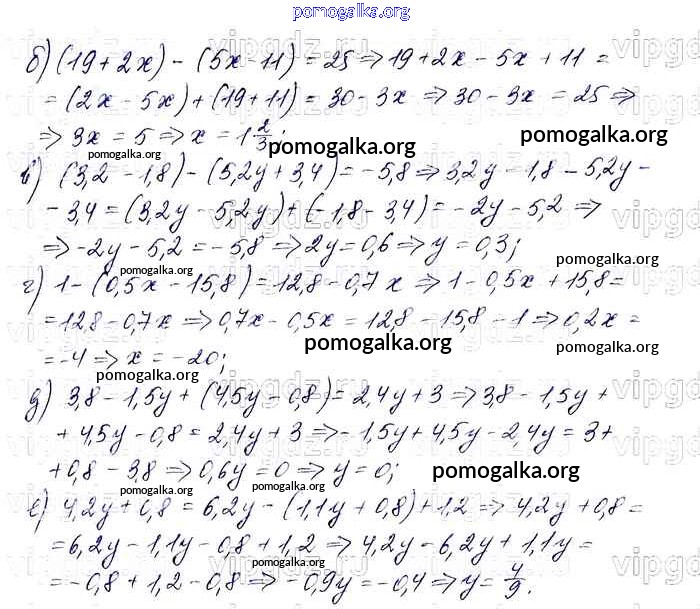 pomogalka.org
б) (19+2x) - (5x-11) = 25 ⇒ 19+2x-5x+11 =
= (2x-5x)+(19+11) = 30-3x ⇒ 30-3x = 25 ⇒
⇒ 3x = 5 ⇒ x = 1 2/3;
pomogalka.org pomogalka.org
в) (3,2-1,8)-(5,2y+3,4) = -5,8 ⇒ 3,2y-1,8-5,2y-
-3,4 = (3,2y-5,2y)+(-1,8-3,4) = -2y-5,2 ⇒
⇒ -2y-5,2 = -5,8 ⇒ 2y = 0,6 ⇒ y = 0,3;
pomogalka.org pomogalka.org
г) 1-(0,5x-15,8) = 12,8-0,7x ⇒ 1-0,5x+15,8 =
= 12,8-0,7x ⇒ 0,7x-0,5x = 12,8-15,8-1 ⇒ 0,2x =
pomogalka.org pomogalka.org
= -4 ⇒ x = -20;
pomogalka.org
д) 3,8-1,5y+(4,5y-0,8) = 2,4y+3 ⇒ 3,8-1,5y+
+4,5y-0,8 = 2,4y+3 ⇒ -1,5y+4,5y-2,4y = 3+
+0,8-3,8 ⇒ 0,6y = 0 ⇒ y = 0;
pomogalka.org
pomogalka.org pomogalka.org
е) 4,2y+0,8 = 6,2y-(1,1y+0,8)+1,2 ⇒ 4,2y+0,8 =
= 6,2y-1,1y-0,8+1,2 ⇒ 4,2y-6,2y+1,1y =
= -0,8+1,2-0,8 ⇒ -0,9y = -0,4 ⇒ y = 4/9.
pomogalka.org pomogalka.org